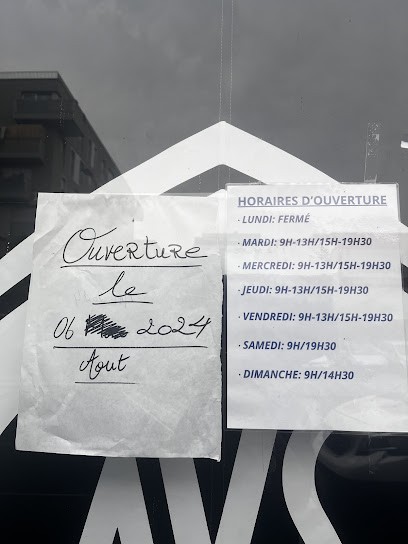 Ouverture
le
06 2024
Aout
HORAIRES D'OUVERTURE
· LUNDI: FERMÉ
· MARDI: 9H-13H/15H-19H30
· MERCREDI: 9H-13H/15H-19H30
· JEUDI: 9H-13H/15H-19H30
· VENDREDI: 9H-13H/15H-19H30
· SAMEDI: 9H/19H30
· DIMANCHE: 9H/14H30